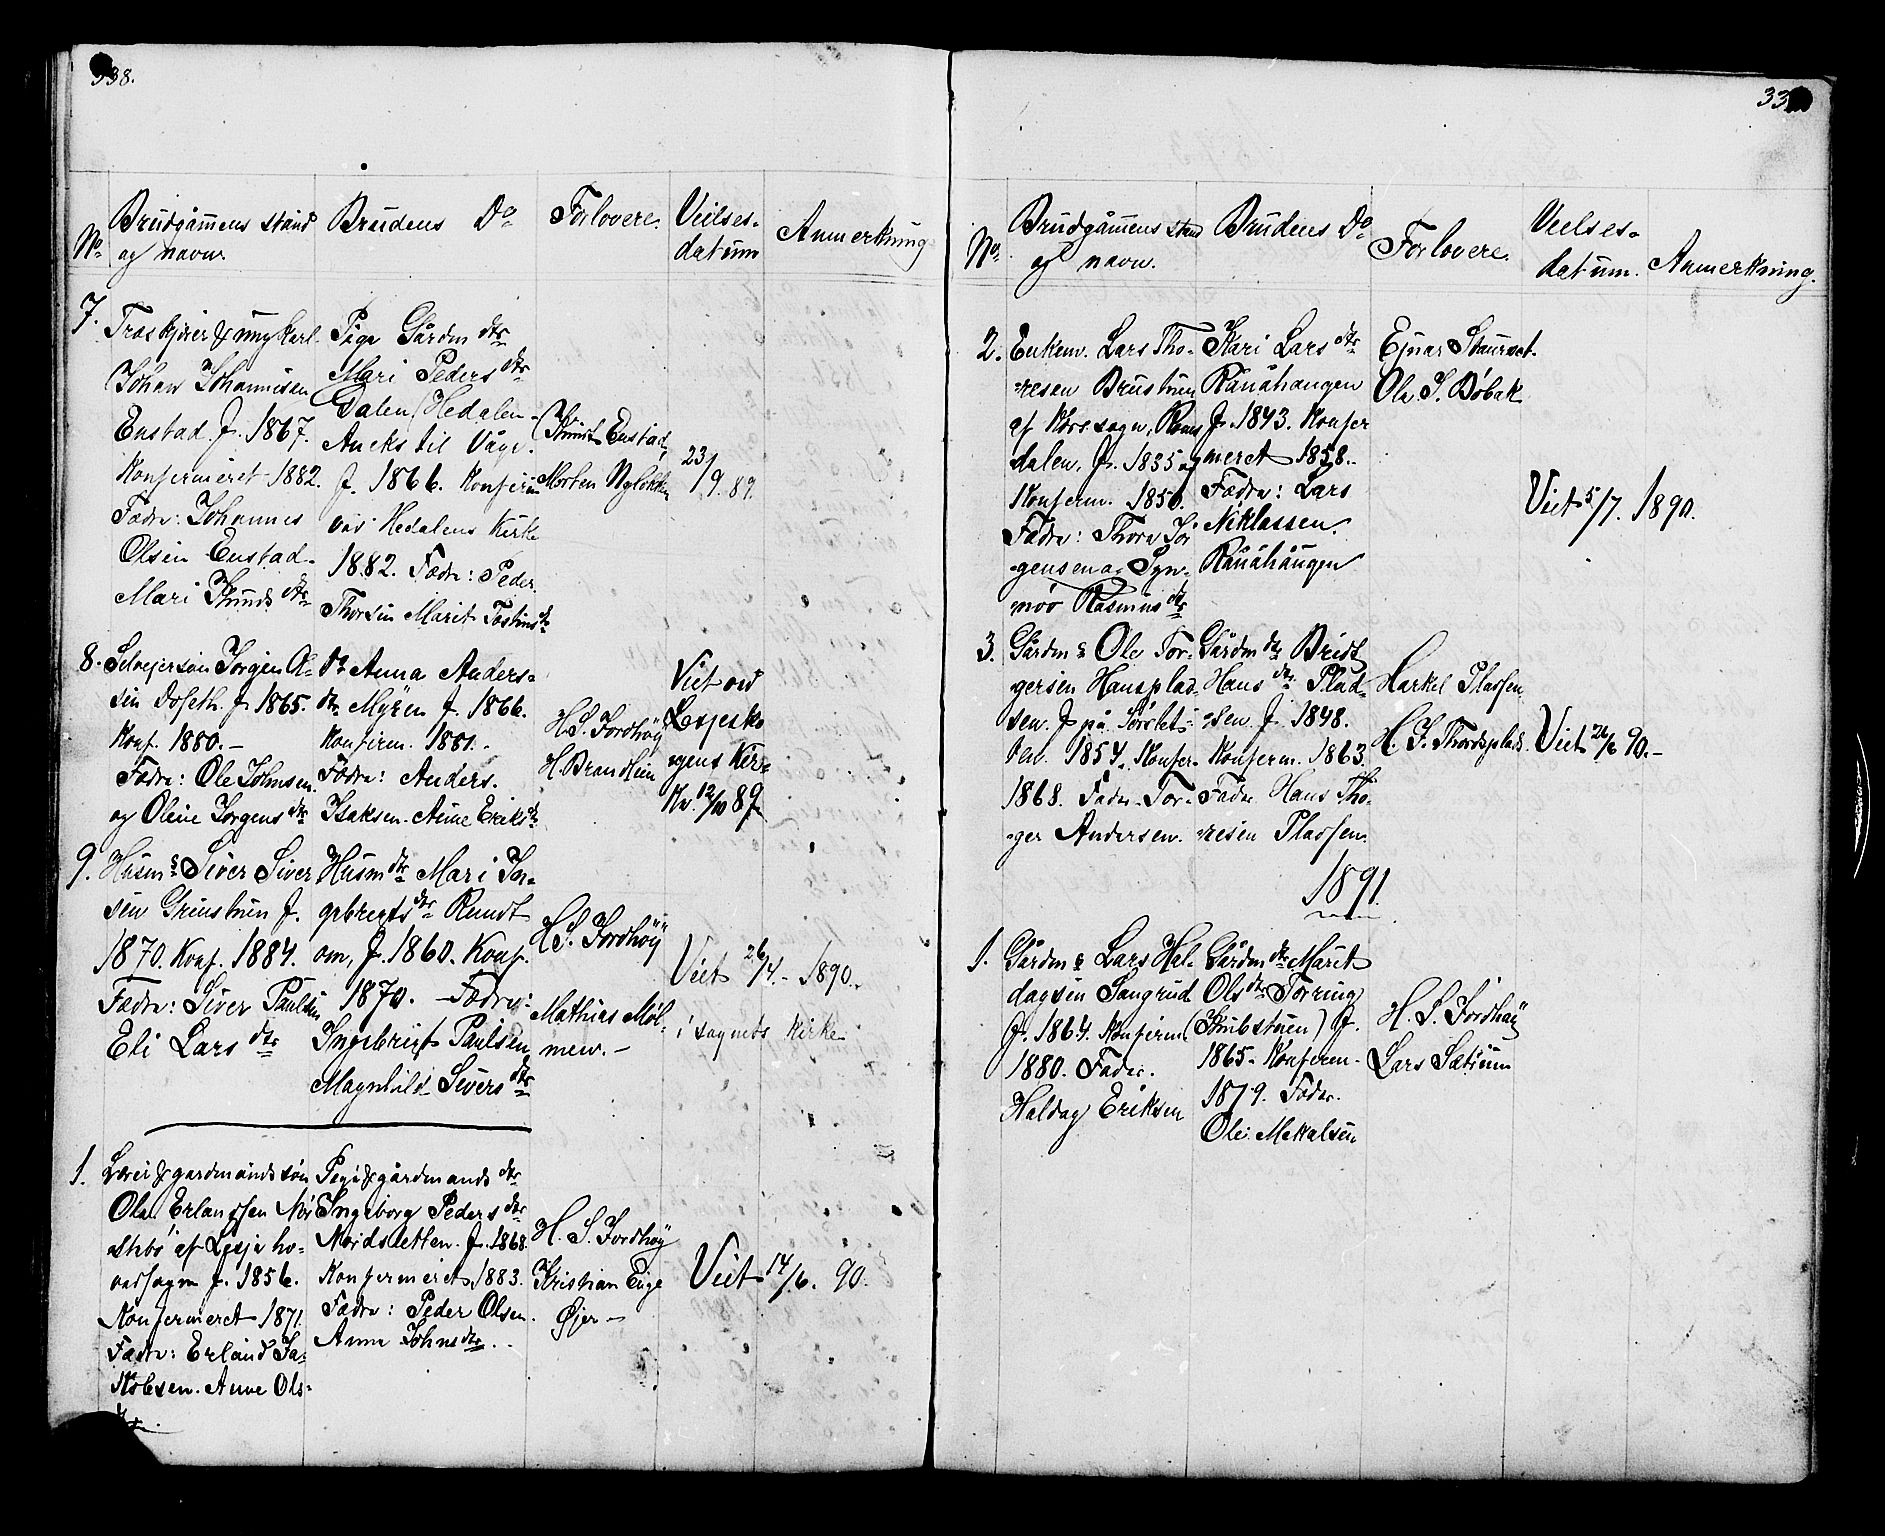 338.
No.
Brudgåmens stand
og navn.
Brudens Do
Forlovere.
Vielses-
datum
Anmerkning
7.
Træskjærer & ungkarl
Johan Johannisen
Enstad. f. 1867.
Konfermeret 1882.
Fædre: Johannes
Olsen Enstad.
Mari Knuds dtr
Pige Gårdm dtr
Mari Peders dtr
Dalen (Hedalen
Aneks til Våge.
f. 1866. Konferm
ved Hedalens Kirke
1882. Fædre: Peder
Thorsen Marit Tostens dtr
Knut Enstad,
Morten Nylökken
23/9. 89.
8.
Selvejersøn Jörgen Ol-
sen Doseth. f 1865.
Konf. 1880.-
Fædre: Ole Johnsen.
og Oline Jörgens dtr
Pr Anna Anders-
dtr Myren f. 1866.
Konferm. 1881.-
Fædre: Anders.
Isaksen. Anne Eriks dtr
H. S. Jordhöÿ
H. Brandlien
Viet ved
Lesjesko
gens Kir-
ke. 12/10 89
9.
Husm s Siver Siver
sen Grinstuen f.
1870. Konf. 1884.
Fædre: Siver Paulsen
Eli Lars dtr
Husm dtr Mari In-
gebregts dtr Rundt
om, f. 1860. Konf.
1870. - Fædre:
Ingebrigt Paulsen
Magnhild Sivers dtr
H. S. Jordhöÿ
Mathias Möl-
men. -
Viet 26/4. - 1890.
i sognets kirke
1.
Lærer & gardmands søn
Ola Erlandsen Nör
stebö af Lesje ho-
vedsogn f. 1856.
Konfermeret 1871.
Fædre: Erland Ja-
kobsen. Anne Ols-
dtr.
Pige & gårdmands dtr
Ingeborg Peders dtr
Nordsletten. f. 1868.
Konfermeret 1883.
Fædre: Peder Olsen.
Anne Johns dtr.
H. S. Jordhöÿ
Kristian Enge
Øjer -
Viet 14/6. 90.
No.
Brudgåmens stand
og navn.
Brudens Do
Forlovere.
Vielses-
datum.
Anmerkning.
2.
Enkem. Lars Tho-
resen Brustuen
af Kors sogn, Roms
dalen, f. 1835 og
Konferm. 1850.
Fædre: Thore Jör
gensen og Syn-
növ Rasmus dtr
Kari Lars dtr
Rånåhaugen
f. 1843. Konfer
meret 1858.
Fædre: Lars
Niklassen.
Rånåhaugen
Ejnar Staurset.
Ola J. Böbak
Viet 5/7. 1890.
3.
Gårdm s Ole Tor-
gersen Hansplad-
sen. f på Törstet-
1854. Konfer-
1868. Fædre Tor-
ger Andersen.
Gårdm dtr Bridt
Hans dtr Plad-
sen. f. 1848.
Konferm. 1863.
Fædre Hans Tho-
resen Plassen.
Harkel Plassen
H. J. Thordsplads
Viet 26/6 90. -
1891.
1.
Gårdm s Lars Hal-
dagsen Sangrud
f. 1864. Konferm
1880. Fædre.
Haldag Eriksen
Gårdm dtr Marit
Ols dtr Torring
f.
1865. Konferm-
1879. Fædre.
Ole Mekalsen
H. S. Jordhöÿ
Lars Sætrum